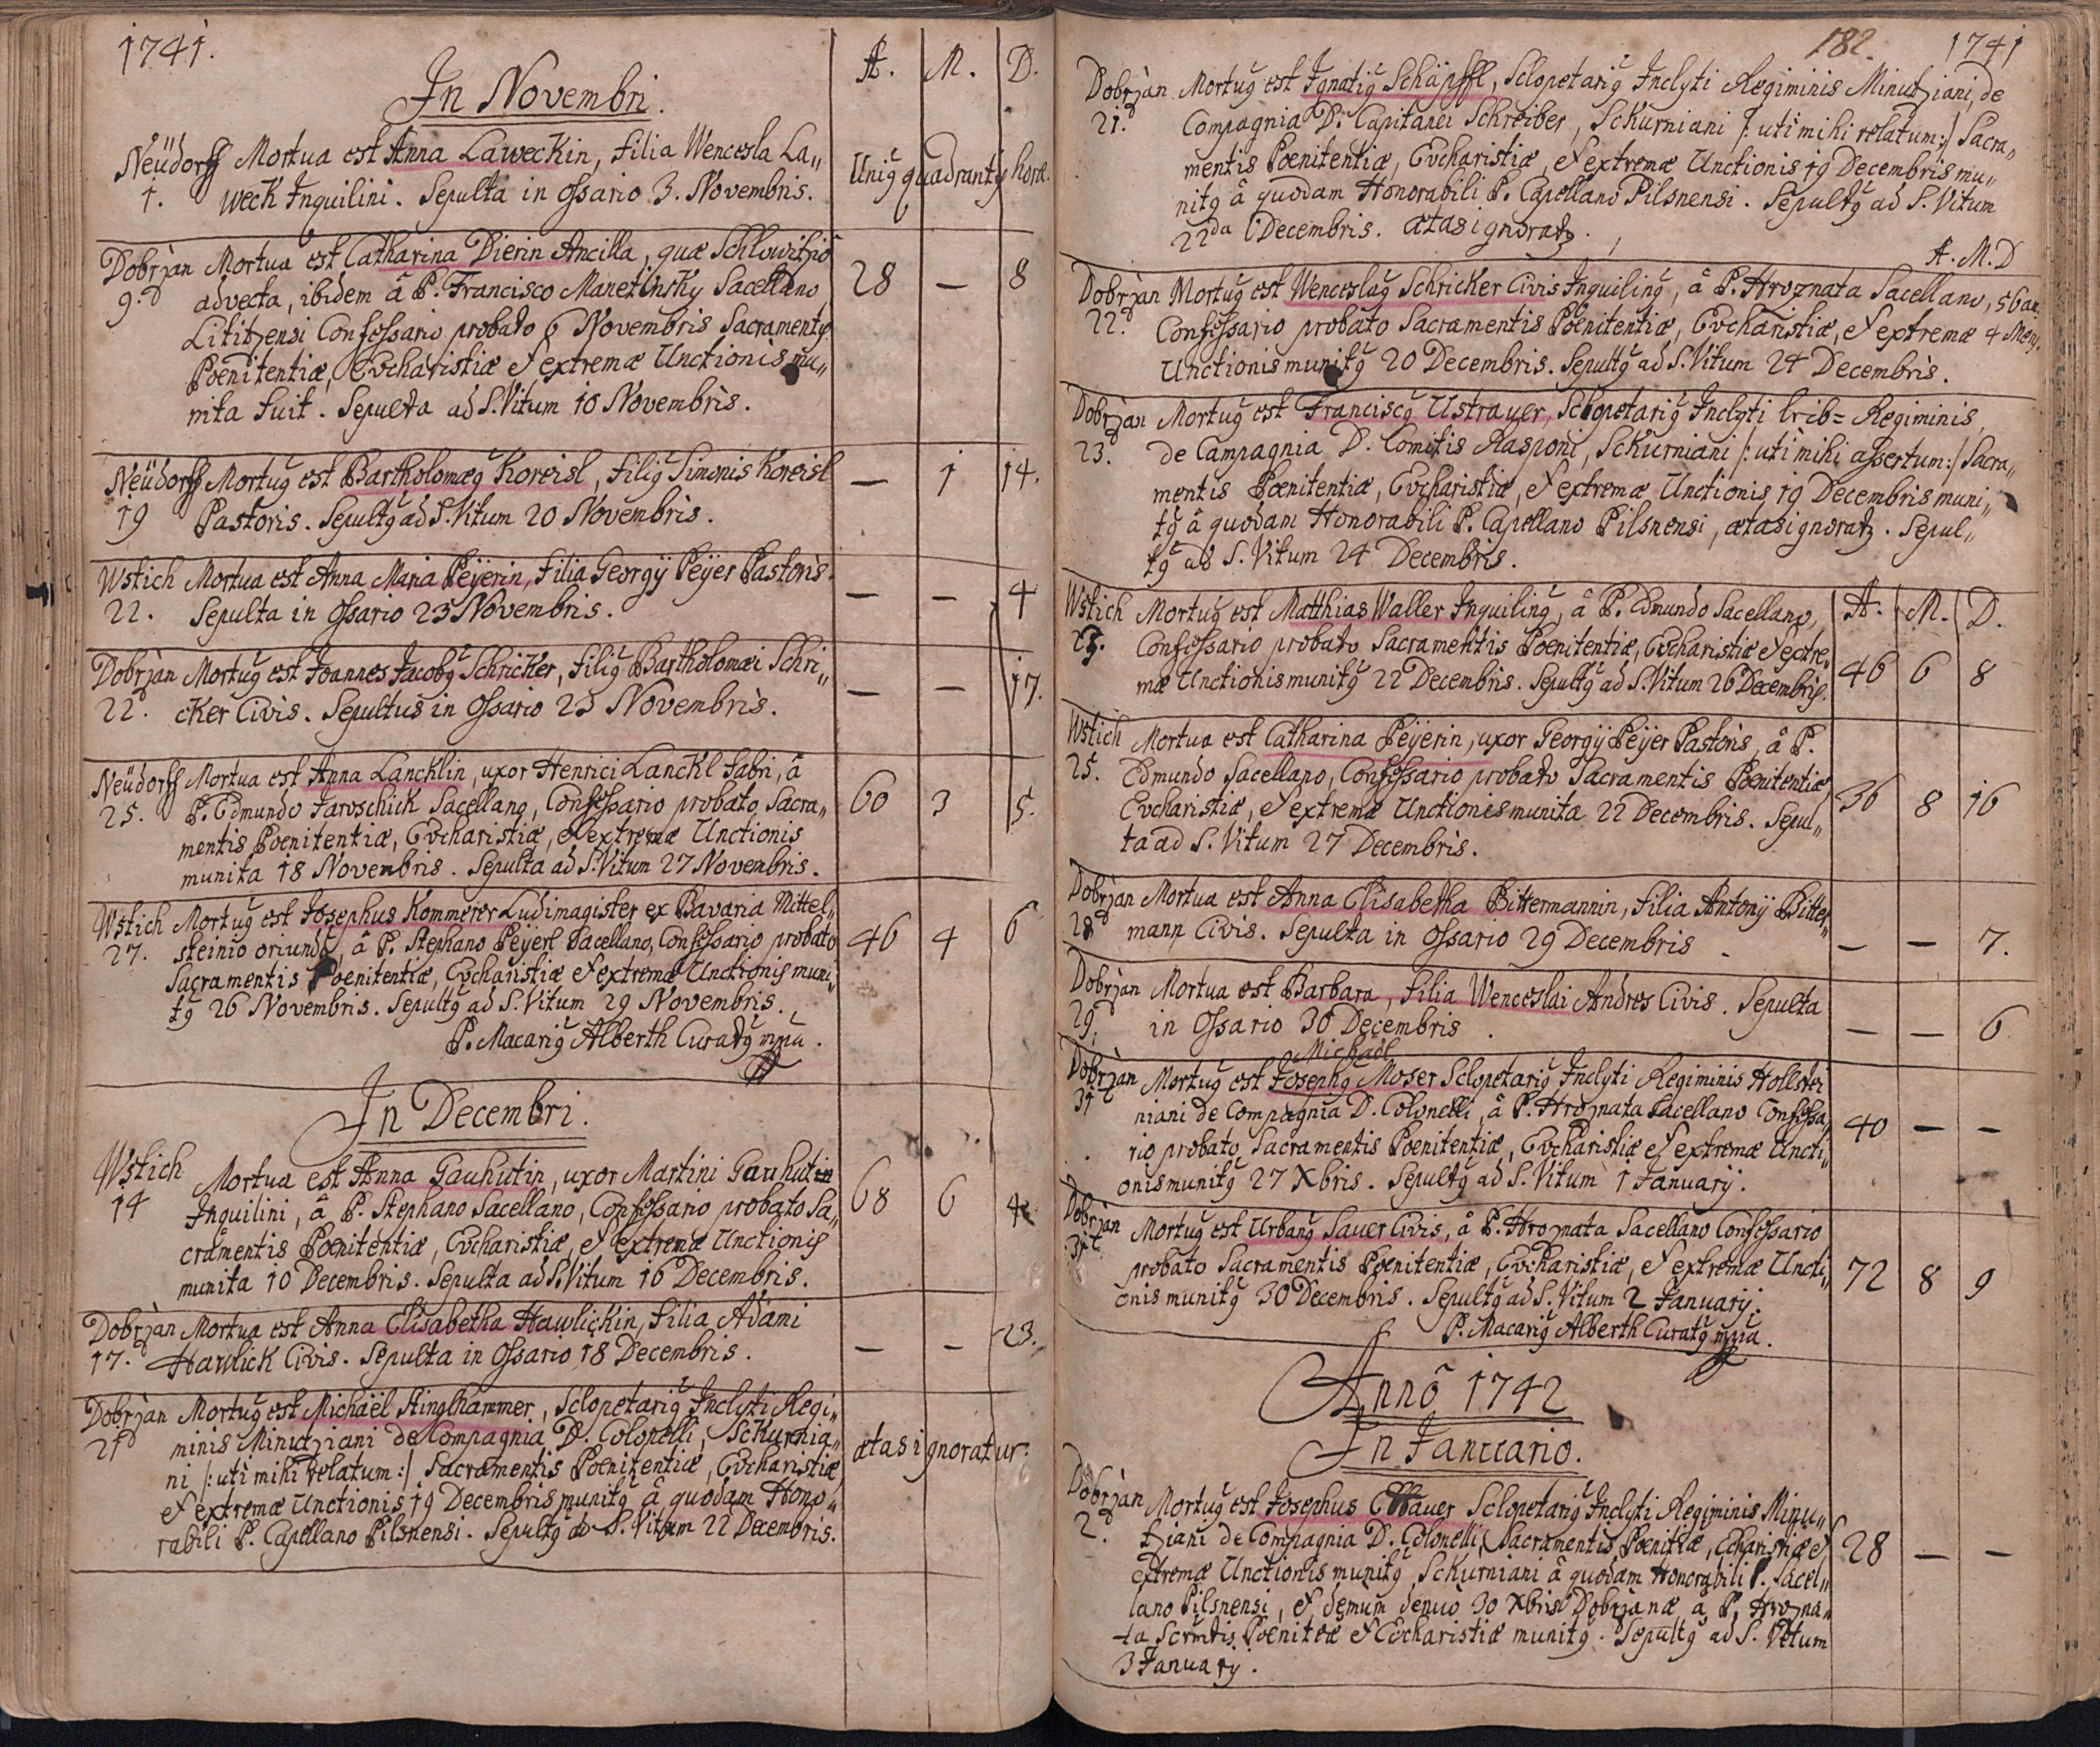 1741.
In Novembri.
A. M. D.
Neüdorff Mortua est Anna Laweckin, Filia Wencesla La„
1. weck Inquilini. Sepulta in Ossario 3. Novembris.
Unig quadrantg horæ.
Dobrzan Mortua est Catharina Dierin Ancilla, quæ Schlowitzio
9.d advecta, ibidem â P. Francisco Manetinsky Sacellano 28 — 8
Lititzensi Confessario probato 6 Novembris Sacramentg
Poenitentiæ, Evcharistiæ et extremæ Unctionis mu„
nita fuit. Sepulta ad S. Vitum 10 Novembris.
Neüdorff Mortug est Bartholomæg Koreisl, Filig Simonis Koreisl — 1 14.
19 Pastoris. Sepultg ad S. Vitum 20 Novembris.
Wstich Mortua est Anna Maria Peÿerin, Filia Georgÿ Peÿer Pastoris.
22. Sepulta in Ossario 23 Novembris. — — 4
Dobrzan Mortug est Joannes Jacobg Schricker, Filig Bartholomæi Schri„
22.d cker Civis. Sepultus in Ossario 23 Novembris. — — 17.
Neüdorff Mortua est Anna Lancklin, uxor Henrici Lanckl Fabri, â
25. P. Edmundo Jaroschick Sacellano, Confessario probato, Sacra„ 60 3 5.
mentis Poenitentiæ, Evcharistiæ, et extremæ Unctionis
munita 18 Novembris. Sepulta ad S. Vitum 27 Novembris.
Wstich Mortug est Josephus Kommerer Ludimagister ex Bavaria Mittel„
27. steinio oriundg, â P. Stephano Peÿerl Sacellano, Confessario probato 46 4 6
Sacramentis Poenitentiæ, Evcharistiæ et extremæ Unctionis muni„
tg 26 Novembris. Sepultg ad S. Vitum 29 Novembris.
P. Macarig Alberth Curatg mpia.
In Decembri.
Wstich Mortua est Anna Gauhutin, uxor Martini Gauhutin
14 Inquilini, â P. Stephano Sacellano, Confessario probato Sa„ 68 6 4
cramentis Poenitentiæ, Evcharistiæ, et extremæ Unctionis
munita 10 Decembris. Sepulta ad S. Vitum 16 Decembris.
Dobrzan Mortua est Anna Elisabetha Hawlickin, Filia Adami
17.d Hawlick Civis. Sepulta in Ossario 18 Decembris. — — 23.
Dobrzan Mortug est Michaël Stinglhammer, Sclopetarig Inclyti Regi„
21d minis Minutziani de Compagnia D. Colonelli, Skurnia„ ætas ignoratur.
ni /: uti mihi relatum :/ Sacramentis Poenitentiæ, Evcharistiæ
et extremæ Unctionis 19 Decembris munitg â quodam Hono„
rabili P. Capellano Pilsnensi. Sepultg ad S. Vitum 22 Decembris.
182. 1741
Dobrzan Mortug est Ignatig Schäpffl, Sclopetarig Inclyti Regiminis Minutziani, de
21.d Compagnia D. Capitanei Schreiber, Skurniani /: uti mihi relatum :/ Sacra„
mentis Poenitentiæ, Evcharistiæ, et extremæ Unctionis 19 Decembris mu„
nitg â quodam Honorabili P. Capellano Pilsnensi. Sepultg ad S. Vitum
22da Decembris. ætas ignoratg.
A. M. D
Dobrzan Mortug est Wenceslag Schricker Civis Inquiling, â P. Hroznata Sacellano, 56 an.
22.d Confessario probato Sacramentis Poenitentiæ, Evcharistiæ, et extremæ 4 Mens.
Unctionis munitg 20 Decembris. Sepultg ad S. Vitum 24 Decembris.
Dobrzan Mortug est Franciscg Ustrayer, Sclopetarig Inclyti Regiminis
23.d de Campagnia D. Comitis Rasponi, Skurniani /: uti mihi assertum :/ Sacra„
mentis Poenitentiæ, Evcharistiæ, et extremæ Unctionis 19 Decembris muni„
tg â quodam Honorabili P. Capellano Pilsnensi, ætas ignoratg. Sepul„
tg ad S. Vitum 24 Decembris.
A. M. D.
Wstich Mortug est Matthias Waller Inquiling, â P. Edmundo Sacellano,
Confessario probato Sacramentis Poenitentiæ, Evcharistiæ et extre„
mæ Unctionis munitg 22 Decembris. Sepultg ad S. Vitum 26 Decembris. 46 6 8
Wstich Mortua est Catharina Peÿerin, uxor Georgÿ Peÿer Pastoris, â P.
25. Edmundo Sacellano, Confessario probato Sacramentis Poenitentiæ
Evcharistiæ, et extremæ Unctionis munita 22 Decembris. Sepul„ 36 8 16
ta ad S. Vitum 27 Decembris.
Dobrzan Mortua est Anna Elisabetha Bittermannin, Filia Antonÿ Bitter„
28.d mann Civis. Sepulta in Ossario 29 Decembris — — 7.
Dobrzan Mortua est Barbara, Filia Wenceslai Andres Civis. Sepulta
29.d in Ossario 30 Decembris. — — 6
Michael
Dobrzan Mortug est Josephg Moser Sclopetarig Inclyti Regiminis Hollstei
31 niani de Compagnia D. Colonelli, â P. Hroznata Sacellano Confessa„ 40 — —
rio probato, Sacramentis Poenitentiæ, Evcharistiæ et extremæ Uncti„
onis munitg 27 Xbris. Sepultg ad S. Vitum 1 Januarÿ.
Dobrzan Mortug est Urbang Sauer Civis, â P. Hroznata Sacellano Confessario
31 probato Sacramentis Poenitentiæ, Evcharistiæ, et extremæ Uncti„ 72 8 9
onis munitg 30 Decembris. Sepultg ad S. Vitum 2 Januarÿ.
P. Macarig Alberth Curatg mpia.
Annô 1742
In Januario.
Dobrzan Mortug est Josephus Sclopetarig Inclyti Regiminis Minu„
2.d tziani de Compagnia D. Colonelli, Sacramentis Poenitiæ, Echaristiæ et 28 — —
extremæ Unctionis munitg Skurniani â quodam Honorabili P. Sacel„
lano Pilsnensi, et demum denuo 30 Xbris Dobrzanæ, â P. Hrozna„
ta Scrmtis Poenitæ et Evcharistiæ munitg. Sepultg ad S. Vitum
3 Januarÿ.